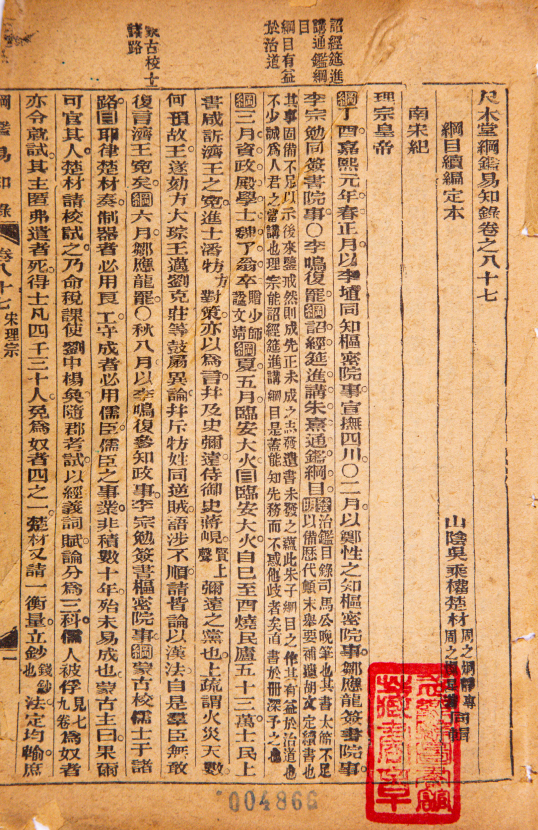 詔經筵進
講通鑑綱
目
綱目有益
於治道
蒙古校士
諸路
尺木堂綱鑑易知錄卷之八十七
綱目續編定本 山陰吳乘權楚材 周之炯靜專 同輯
南宋紀
理宗皇帝
綱丁酉嘉熙元年春正月以李埴同知樞密院事宣撫四川○二月以鄭性之知樞密院事鄒應龍簽書院事
李宗勉同簽書院事○李鳴復罷綱詔經筵進講朱熹通鑑綱目發明治鑑目錄司馬公晚筆也其書太簡不足以備歷代顛末舉要補遺胡文定續書也
其事固備不足以示後來鑒戒然則成先正未成之志發遺書未發之蘊此朱子綱目之作其有益於治道也
不少誠爲人君之當講也理宗能詔經筵進講綱目是蓋能知先務而不惑他歧者矣直書於冊深予之也
綱三月資政殿學士魏了翁卒贈少師諡文靖綱夏五月臨安大火目臨安大火自巳至酉燒民廬五十三萬士民上
書咸訴濟王之冤進士潘牥方對策亦以爲言幷及史彌遠侍御史蔣峴賢上聲彌遠之黨也上疏謂火災天數
何預故王遂劾方大琮王邁劉克莊等鼓扇異論幷斥牥姓同逆賊語涉不順請皆論以漢法自是羣臣無敢
復言濟王冤矣綱六月鄒應龍罷○秋八月以李鳴復參知政事李宗勉簽書樞密院事綱蒙古校儒士于諸
路目耶律楚材奏制器者必用良工守成者必用儒臣儒臣之事業非積數十年殆未易成也蒙古主曰果爾
可官其人楚材請校試之乃命稅課使劉中楊奐隨郡考試以經義詞賦論分爲三科儒人被俘見七九卷爲奴者
亦令就試其主匿弗遣者死得士凡四千三十人免爲奴者四之一楚材又請一衡量立鈔錢鈔也法定均輸庶
綱鑑易知錄 卷八十七 宋理宗 一
004866